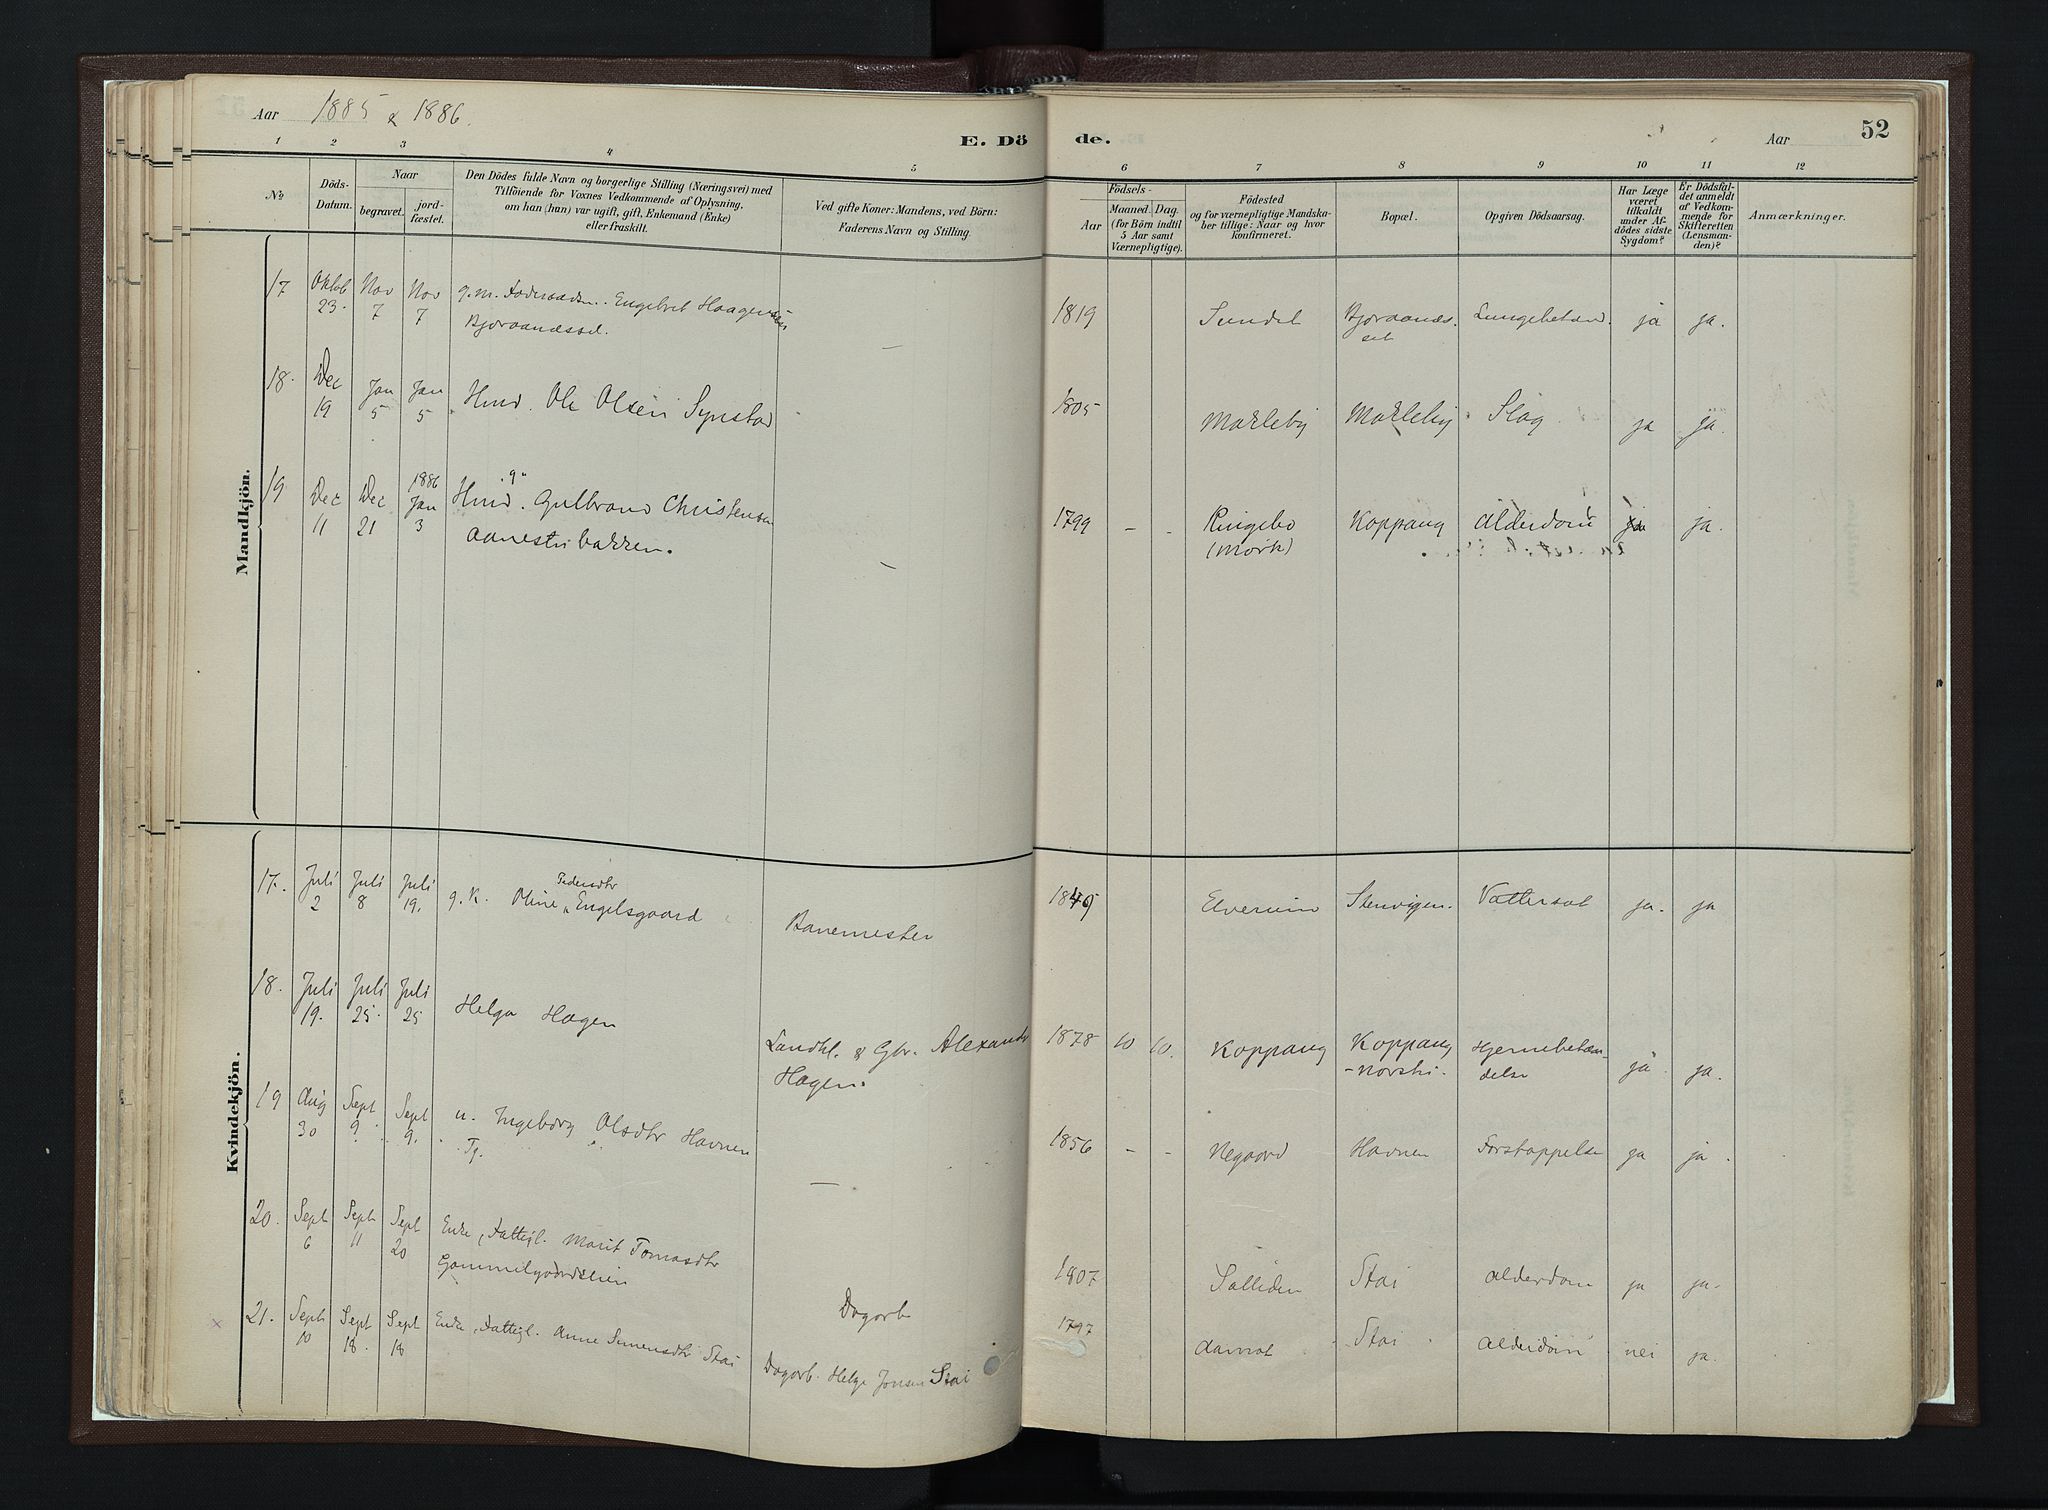 Aar 1885 & 1886.
E. Dö de.
Aar
52
1 2 3 4 5 6 7 8 9 10 11 12
№
Döds-
Datum.
Naar
begravet.
jord-
fæstet.
Den Dödes fulde Navn og borgerlige Stilling (Næringsvei) med
Tilföiende for Voxnes Vedkommende af Oplysning,
om han (hun) var ugift, gift, Enkemand (Enke)
eller fraskilt.
Ved gifte Koner: Mandens, ved Börn:
Faderens Navn og Stilling
Födsels-
Aar
Maaned. Dag.
(for Börn indtil
5 Aar samt
Værnepligtige).
Födested
og for værnepligtige Mandska-
ber tillige: Naar og hvor
konfirmeret.
Bopæl.
Opgiven Dödsaarsag.
Har Læge
været
tilkaldt
under Af-
dödes sidste
Sygdom?
Er Dödsfal-
det anmeldt
af Vedkom-
mende for
Skifteretten
(Lensman-
den)?
Anmærkninger.
Mandkjön.
17 Oktob 23. Nov 7 Nov 7 g.m. Engebret Haagensen
Bjøraanesset. — 1819 Sundet Bjøraanes-
set ja ja.
18. Dec 19 Jan 5 Jan 5 Husd. Ole Olsen Synstad 1805 Mokleby Mokleby Slag ja ja.
19 Dec 11 Dec 21 1886 Jan 3 Husd. "g" Gulbrand Christensen
Aanestribakken. — 1799 - - Ringebo
(Mørk) Koppang Alderdom ja.
Kvindekjön.
17. Juli 2 Juli 8 Juli 19. g.K. Oline Pedersdtr Engelsgaard Banemester 1849 Elverum Stenviggen. Vattersot ja. ja
18. Juli 19. Juli 25. Juli 25 Helga Hagen Landhl. & Gbr. Alexander
Hagen. 1878 10 10. Koppang Koppang
-norstri. Hjernebetæn-
delse ja ja.
19 Aug 30 Sept 9 Sept 9. u. Ingeborg Olsdtr Havnen
Tj. — 1856 - - Negaard Havnen Forstoppelse ja ja.
20. Sept 6 Sept 11 Sept 20 Enke, Fattigl. Marit Tomasdtr
Gammelgaardslien Dagarb 1807 Solliden Stai Alderdom ja ja.
x 21. Sept 10 Sept 18. Sept 18 Enke, Fattigl. Anne Simensdtr Stai Dagarb. Helge Jonsen Stai 1797 Aamot Stai Alderdom nei ja.